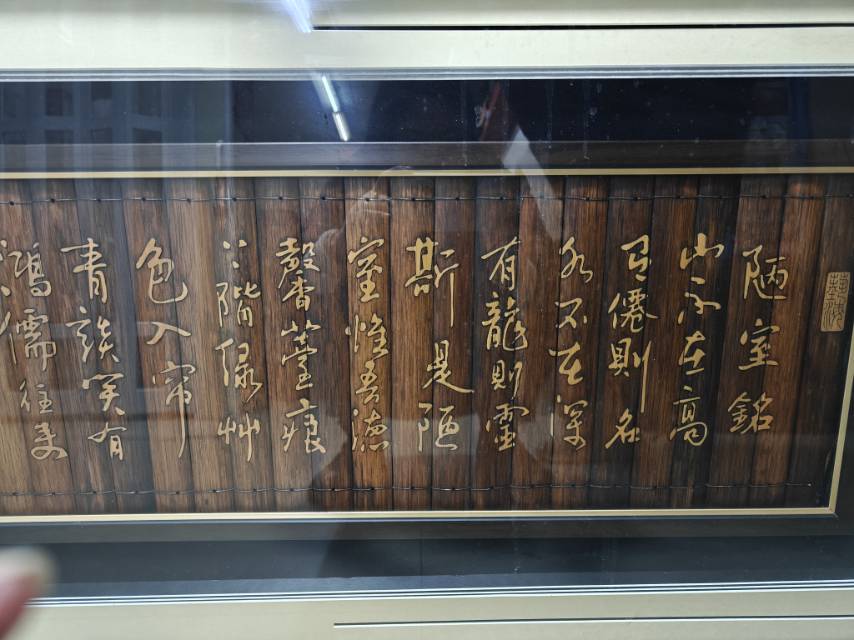 陋室銘
山不在高
有僊則名
水不在深
有龍則靈
斯是陋
室惟吾德
馨薹痕
上階緑艸
色入帘
青談笑有
鴻儒往来